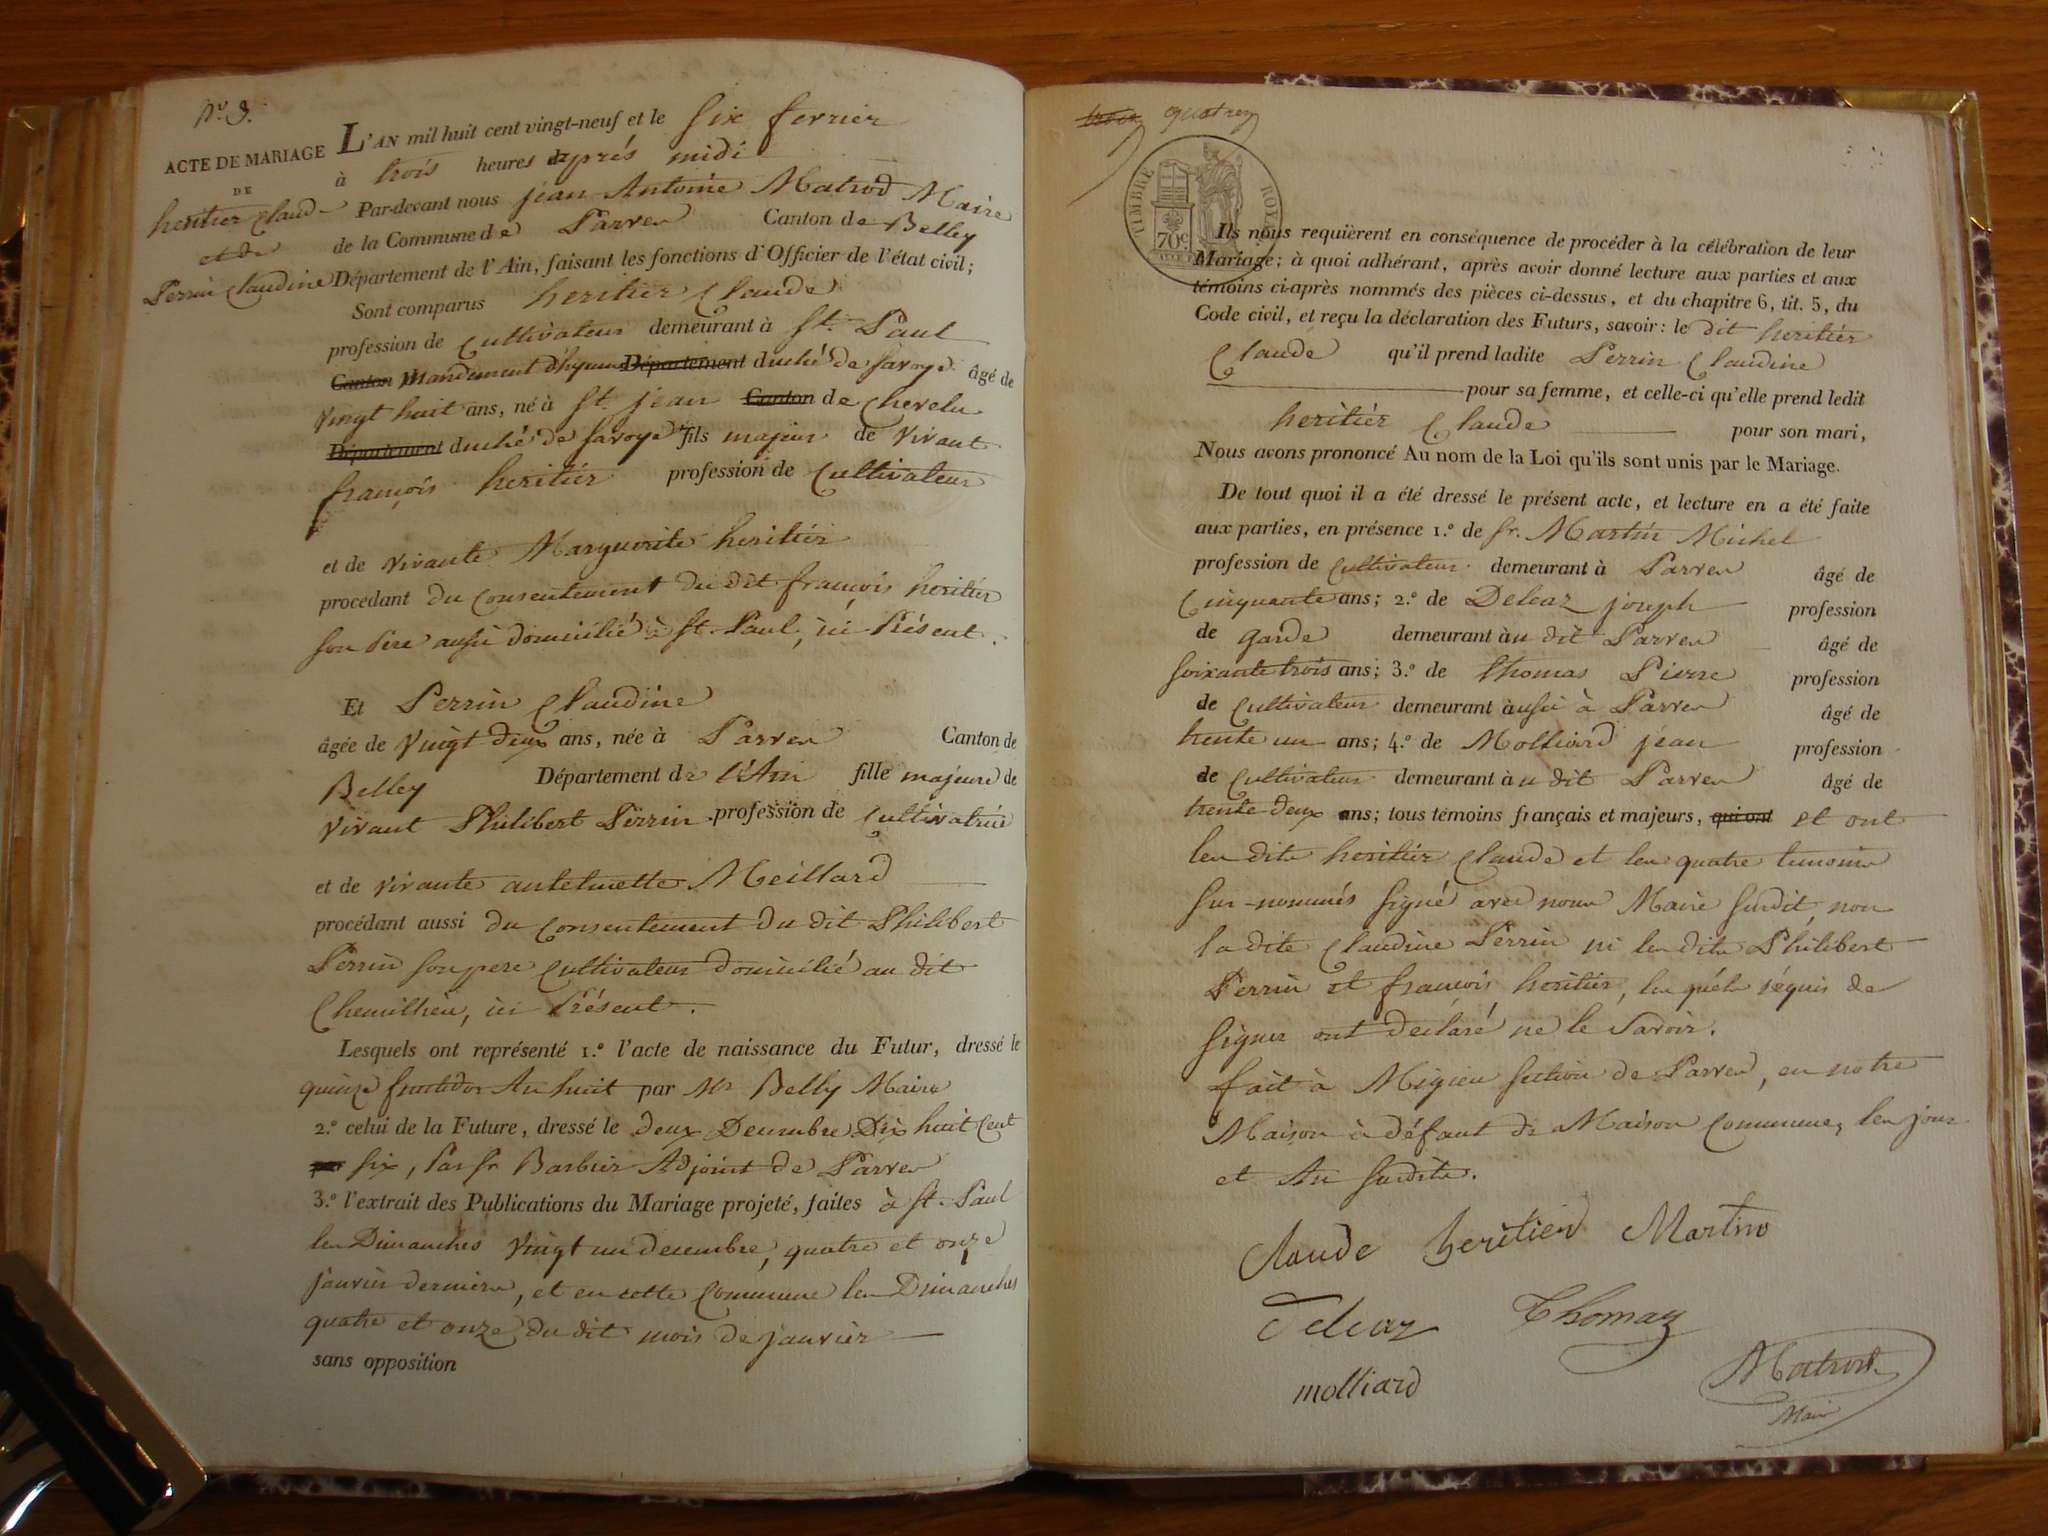 N.º 3.
ACTE DE MARIAGE
DE
heritier Claude
et de
Perrin Claudine
L'AN mil huit cent vingt-neuf et le six fevrier
à trois heures après midi
Par-devant nous jean Antoine Matrod Maire
de la Commune de Parves Canton de Belley
Département de l'Ain, faisant les fonctions d'Officier de l'état civil;
Sont comparus heritier Claude
profession de cultivateur demeurant à St. Paul
Canton Mandement d'hyenne Département duché de Savoye âgé de
vingt huit ans, né à St. jean Canton de Chevelu
Département duché de Savoye fils majeur de vivant
françois heritier profession de Cultivateur
et de vivante Marguerite heritier
procédant du consentement du dit françois heritier
son père aussi domicilié à St. Paul, ici Présent.
Et Perrin Claudine
âgée de vingt deux ans, née à Parves Canton de
Belley Département de l'Ain fille majeure de
vivant Philibert Perrin profession de Cultivatrice
et de vivante antelmette Meillard
procédant aussi du consentement du dit Philibert
Perrin son pere cultivateur domicilié au dit
Chemillieu, ici Présent.
Lesquels ont représenté 1.º l'acte de naissance du Futur, dressé le
quinze fructidor An huit par Mr Belly Maire
2.º celui de la Future, dressé le deux Decembre Dix huit Cent
par six, Par Sr. Barbier Adjoint de Parves
3.º l'extrait des Publications du Mariage projeté, faites à St. Paul
les Dimanches vingt un decembre, quatre et onze
janvier derniers, et en cette Commune les Dimanches
quatre et onze du dit mois de janvier
sans opposition
trois quatre
TIMBRE ROYAL
70c.
Ils nous requièrent en conséquence de procéder à la célébration de leur
Mariage; à quoi adhérant, après avoir donné lecture aux parties et aux
témoins ci-après nommés des pièces ci-dessus, et du chapitre 6, tit. 5, du
Code civil, et reçu la déclaration des Futurs, savoir: le dit heritier
Claude qu'il prend ladite Perrin Claudine
pour sa femme, et celle-ci qu'elle prend ledit
heritier Claude pour son mari,
Nous avons prononcé Au nom de la Loi qu'ils sont unis par le Mariage.
De tout quoi il a été dressé le présent acte, et lecture en a été faite
aux parties, en présence 1.º de Sr. Martin Michel
profession de cultivateur demeurant à Parves âgé de
Cinquante ans; 2.º de Delcaz joseph profession
de garde demeurant au dit Parves âgé de
soixante trois ans; 3.º de thomas Pierre profession
de cultivateur demeurant aussi à Parves âgé de
trente un ans; 4.º de Molliard jean profession
de cultivateur demeurant au dit Parves âgé de
trente deux ans; tous témoins français et majeurs, qui ont et ont
les dits heritier Claude et les quatre temoins
sus-nommés signé avec nous Maire susdit, non
la dite Claudine Perrin ni les dits Philibert
Perrin et françois heritier, les quels réquis de
signer ont declaré ne le savoir.
fait à Migieu section de Parves, en notre
Maison à défaut de Maison Commune, les jour
et An susdits.
Claude heritier Martin
Delcaz Thomas
molliard
Matrod
Maire